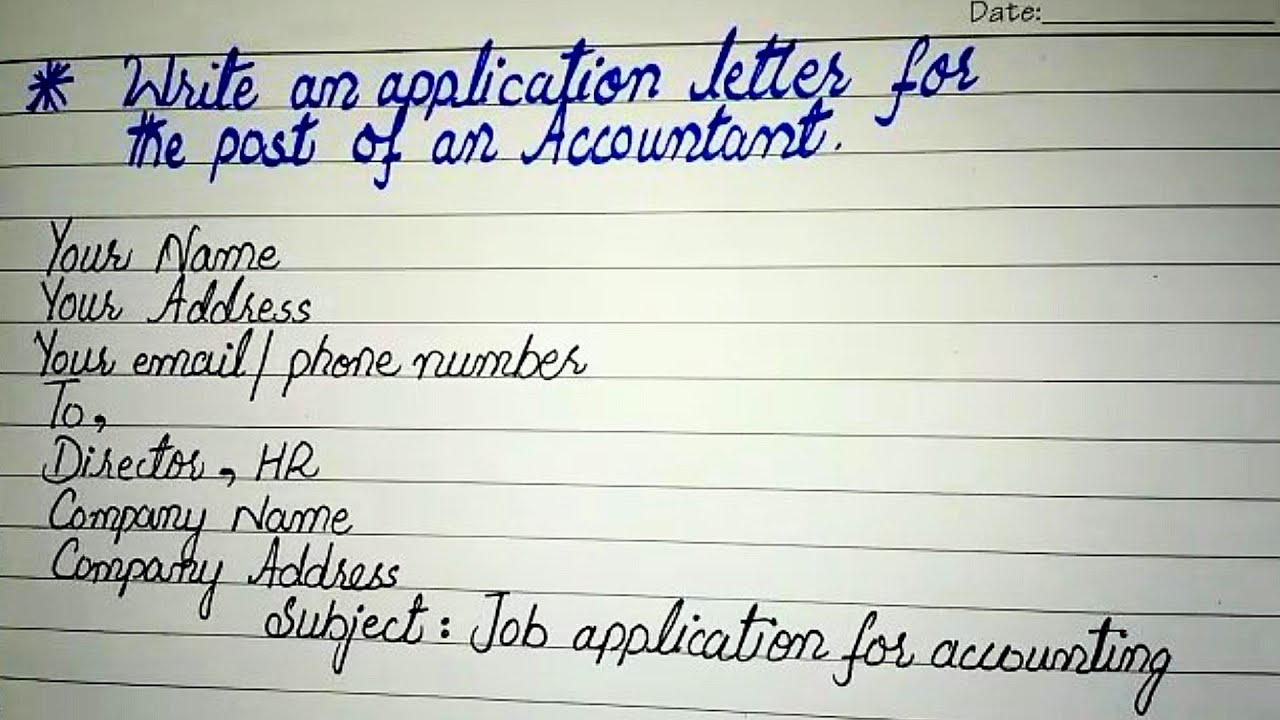 Date:
* Write an application letter for
the post of an Accountant.
Your Name
Your Address
Your email/phone number
To,
Director, HR
Company Name
Company Address
Subject: Job application for accounting